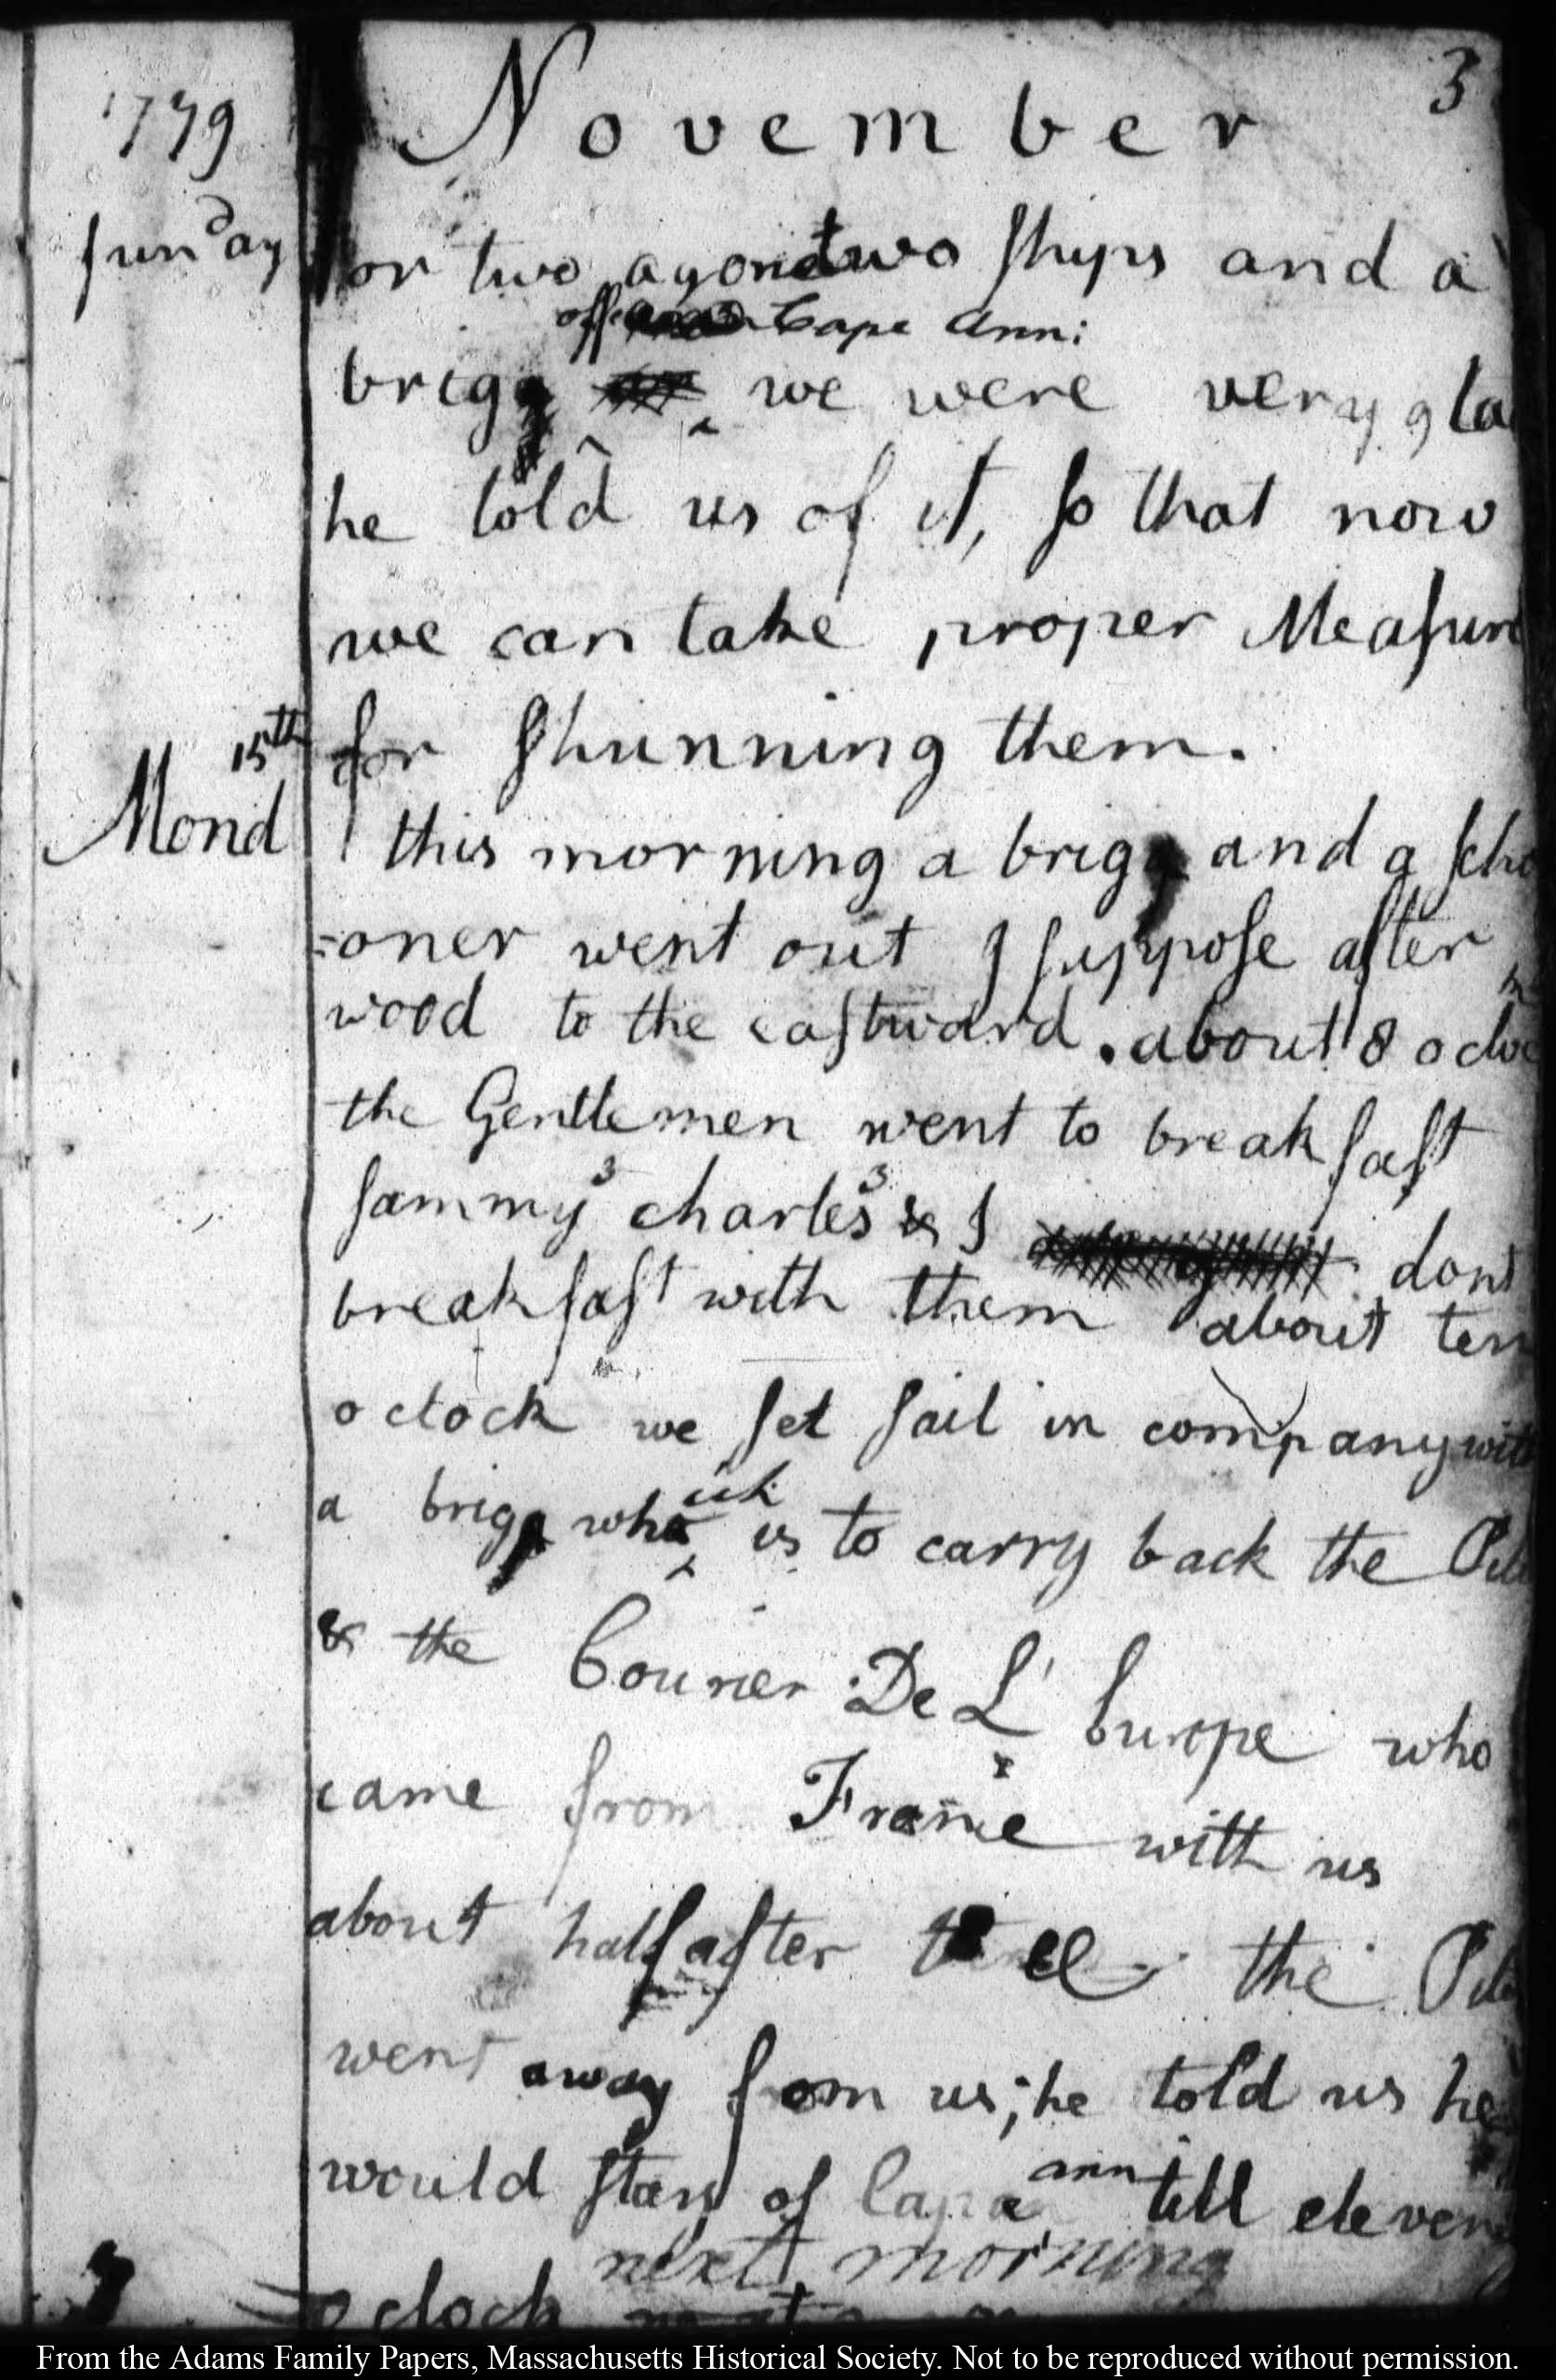 1779 November 3
Sunday or two agone two Ships and a
off Cape Ann:
brigg we were very gla
he told us of it, so that now
we can take proper Measure
15th for Shunning them.
Mond this morning a brigg and a Scho
=oner went out I suppose after
wood to the eastward. about 8 oclo
the Gentlemen went to breakfast
Sammy 3 charles 3 & I dont
breakfast with them about ten
oclock we set sail in company with
ich
a brigg who is to carry back the Pil
& the Courier De L' Europe who
came from France with us
about half after the Pil
went away from us; he told us he
ann
would stay of Cape till eleven
next morning
oclock
From the Adams Family Papers, Massachusetts Historical Society. Not to be reproduced without permission.